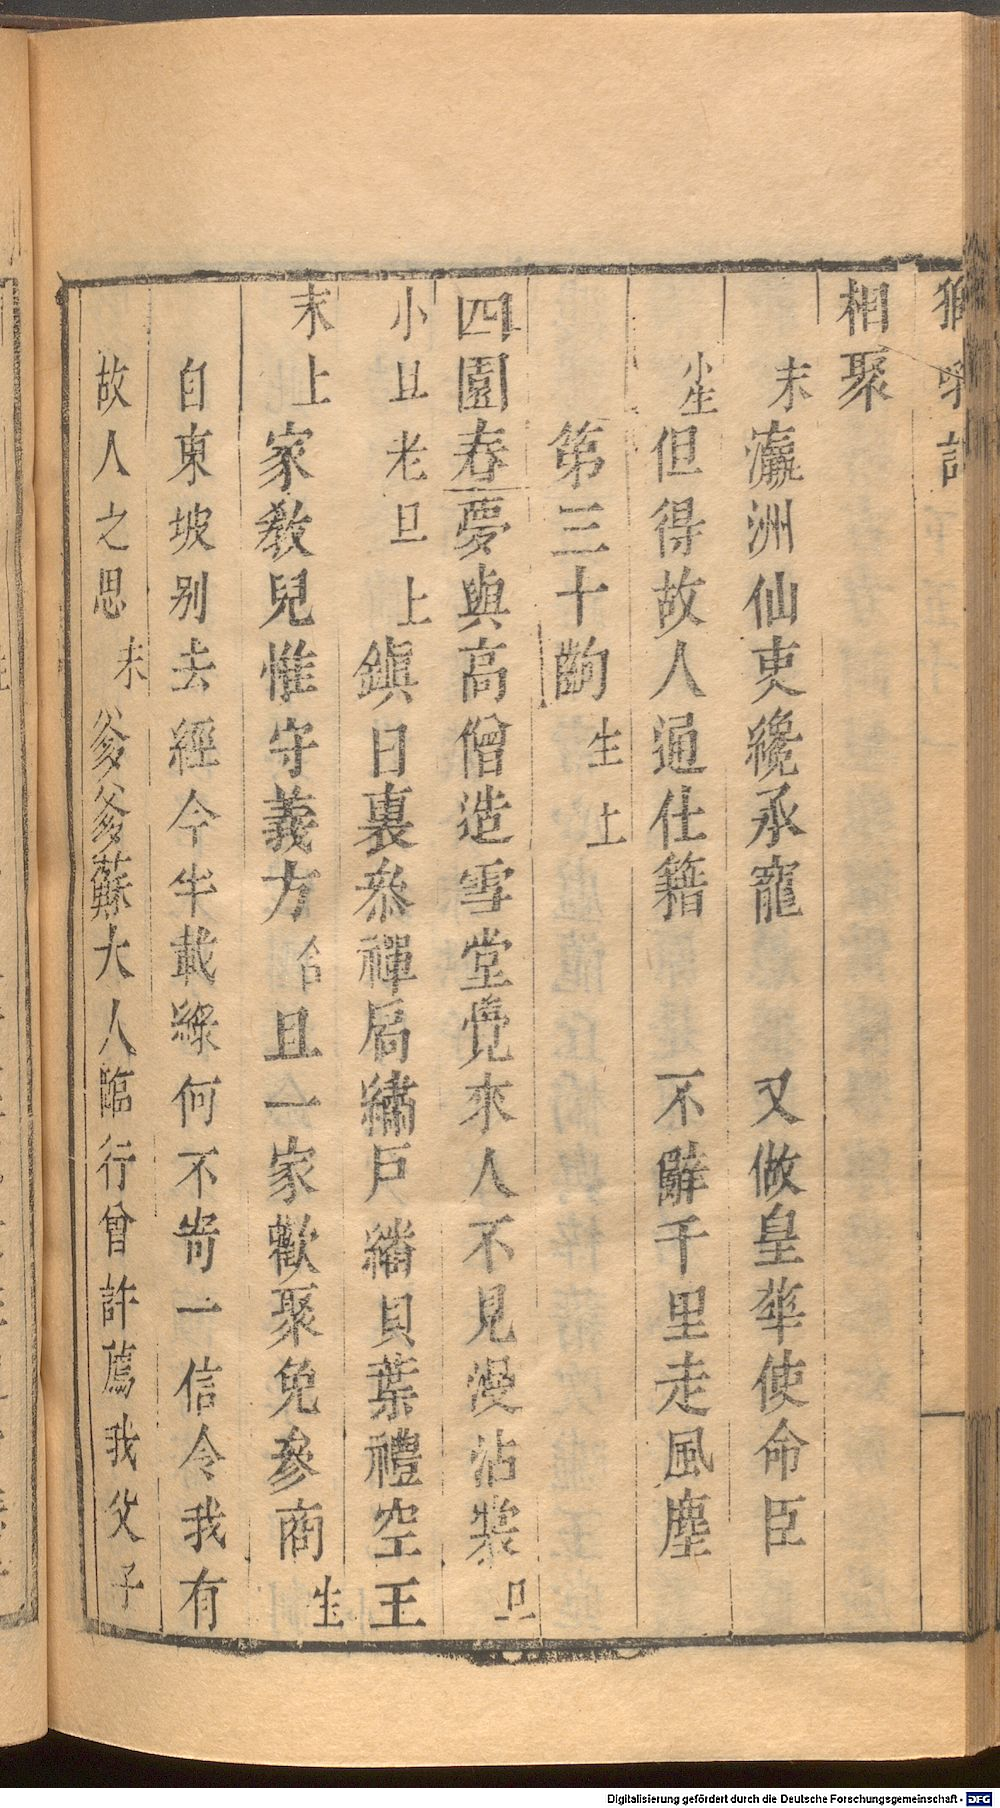 獅吼記
相聚
末 瀛洲仙吏纔承寵 又做皇華使命臣
小生 但得故人通仕籍 不辭千里走風塵
第三十齣 生上
四園春 夢與高僧造雪堂覺來人不見漫沾裳 旦
小旦老旦上 鎮日裏叅禪扃繡戶繙貝葉禮空王
末上 家教兒惟守義方 合 且一家歡聚免參商 生
自東坡别去經今半載緣何不寄一信令我有
故人之思 末 爹爹蘇大人臨行曾許薦我父子
Digitalisierung gefördert durch die Deutsche Forschungsgemeinschaft - DFG